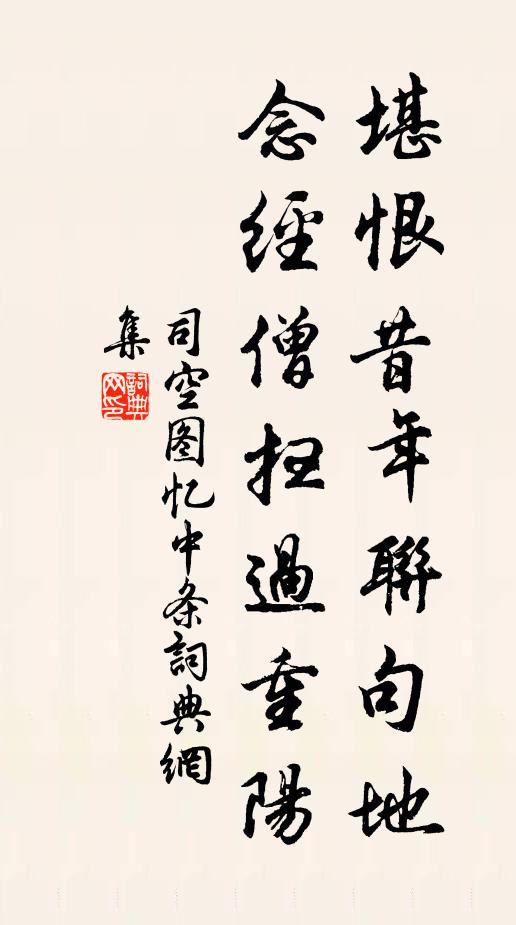 堪恨昔年聯句地
念經僧扫過重陽
司空图忆中条詞典網
集
詞典网印